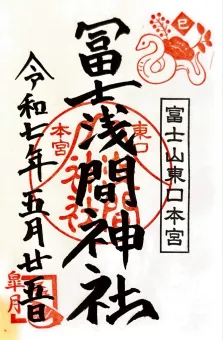 巳
富士山東口本宮
冨士浅間神社
東口
本宮
令和七年五月廿五日
皐月